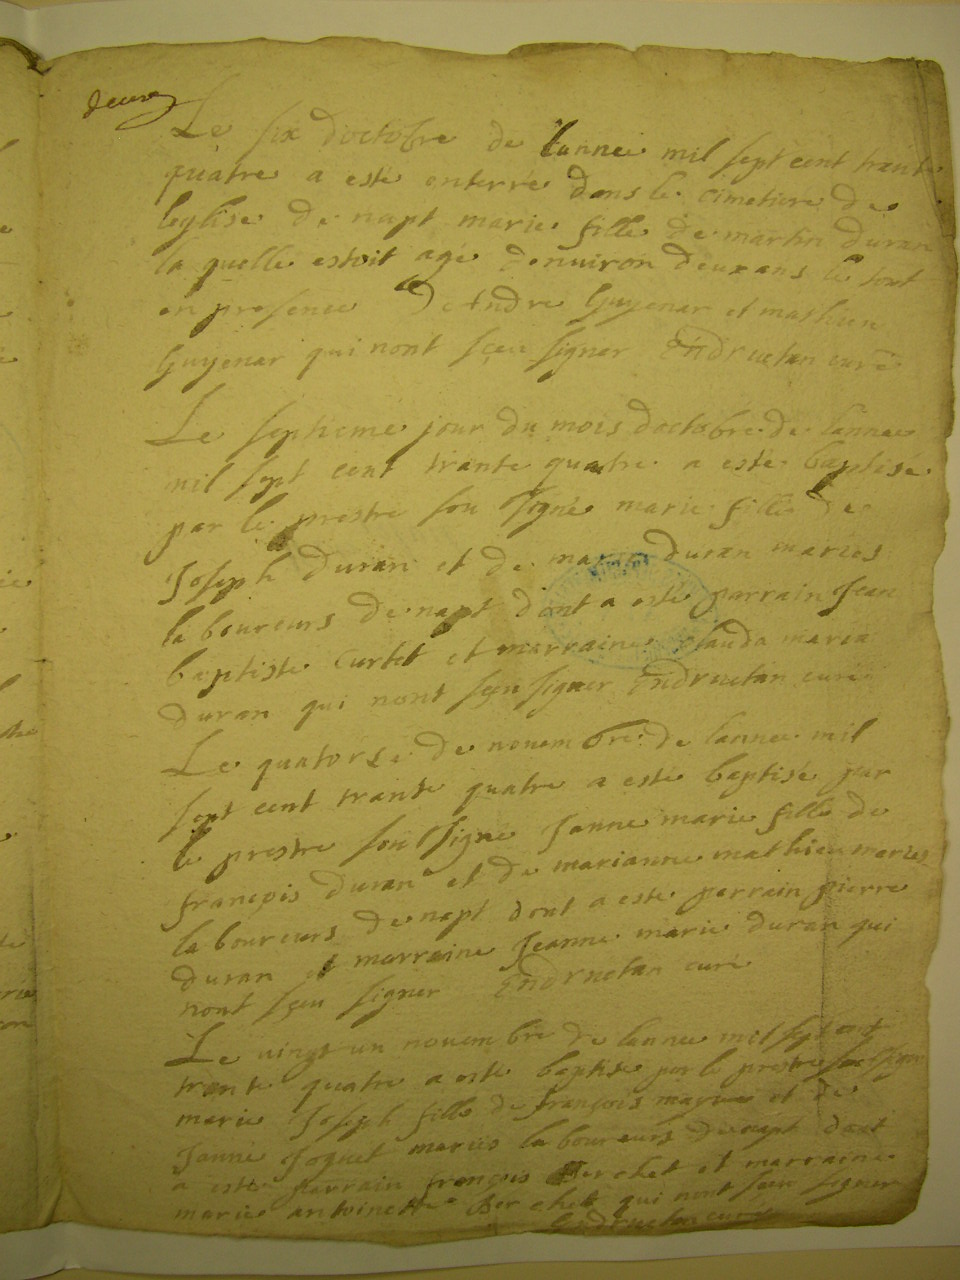 Le six doctobre de lannee mil sept cent trante
quatre a esté enterré dans le cimetiere de
leglise de napt marie fille de martin duran
la quelle estoit agé denuiron deux ans le tout
en presence de Andre Guyenar et mathieu
Guyenar qui nont sçeu signer Endruetan curé
Le septieme jour du mois doctobre de lannee
mil sept cent trante quatre a esté baptisé
par le prestre sou signé marie fille de
Joseph duran et de duran mariés
laboureurs de napt dont a esté parrain Jean
baptiste Curtet et marraine clauda maria
duran qui nont sçeu signer Endruetan curé
Le quatorse de nouembre de lannee mil
sept cent trante quatre a esté baptisé par
le prestre soussigné Janne marie fille de
françois duran et de marianne mathieu mariés
laboureurs de napt dont a esté parrain pierre
duran et marraine Jeanne marie duran qui
nont sçeu signer Endruetan curé
Le vingt un nouembre de lannee mil sept cent
trante quatre a esté baptisé par le prestre
marie Joseph fille de françois et de
Janne Joquet mariés laboureurs de napt dont
a esté parrain françois Berchet et marraine
marie antoinette Berchet qui nont sçeu signer
Endruetan curé